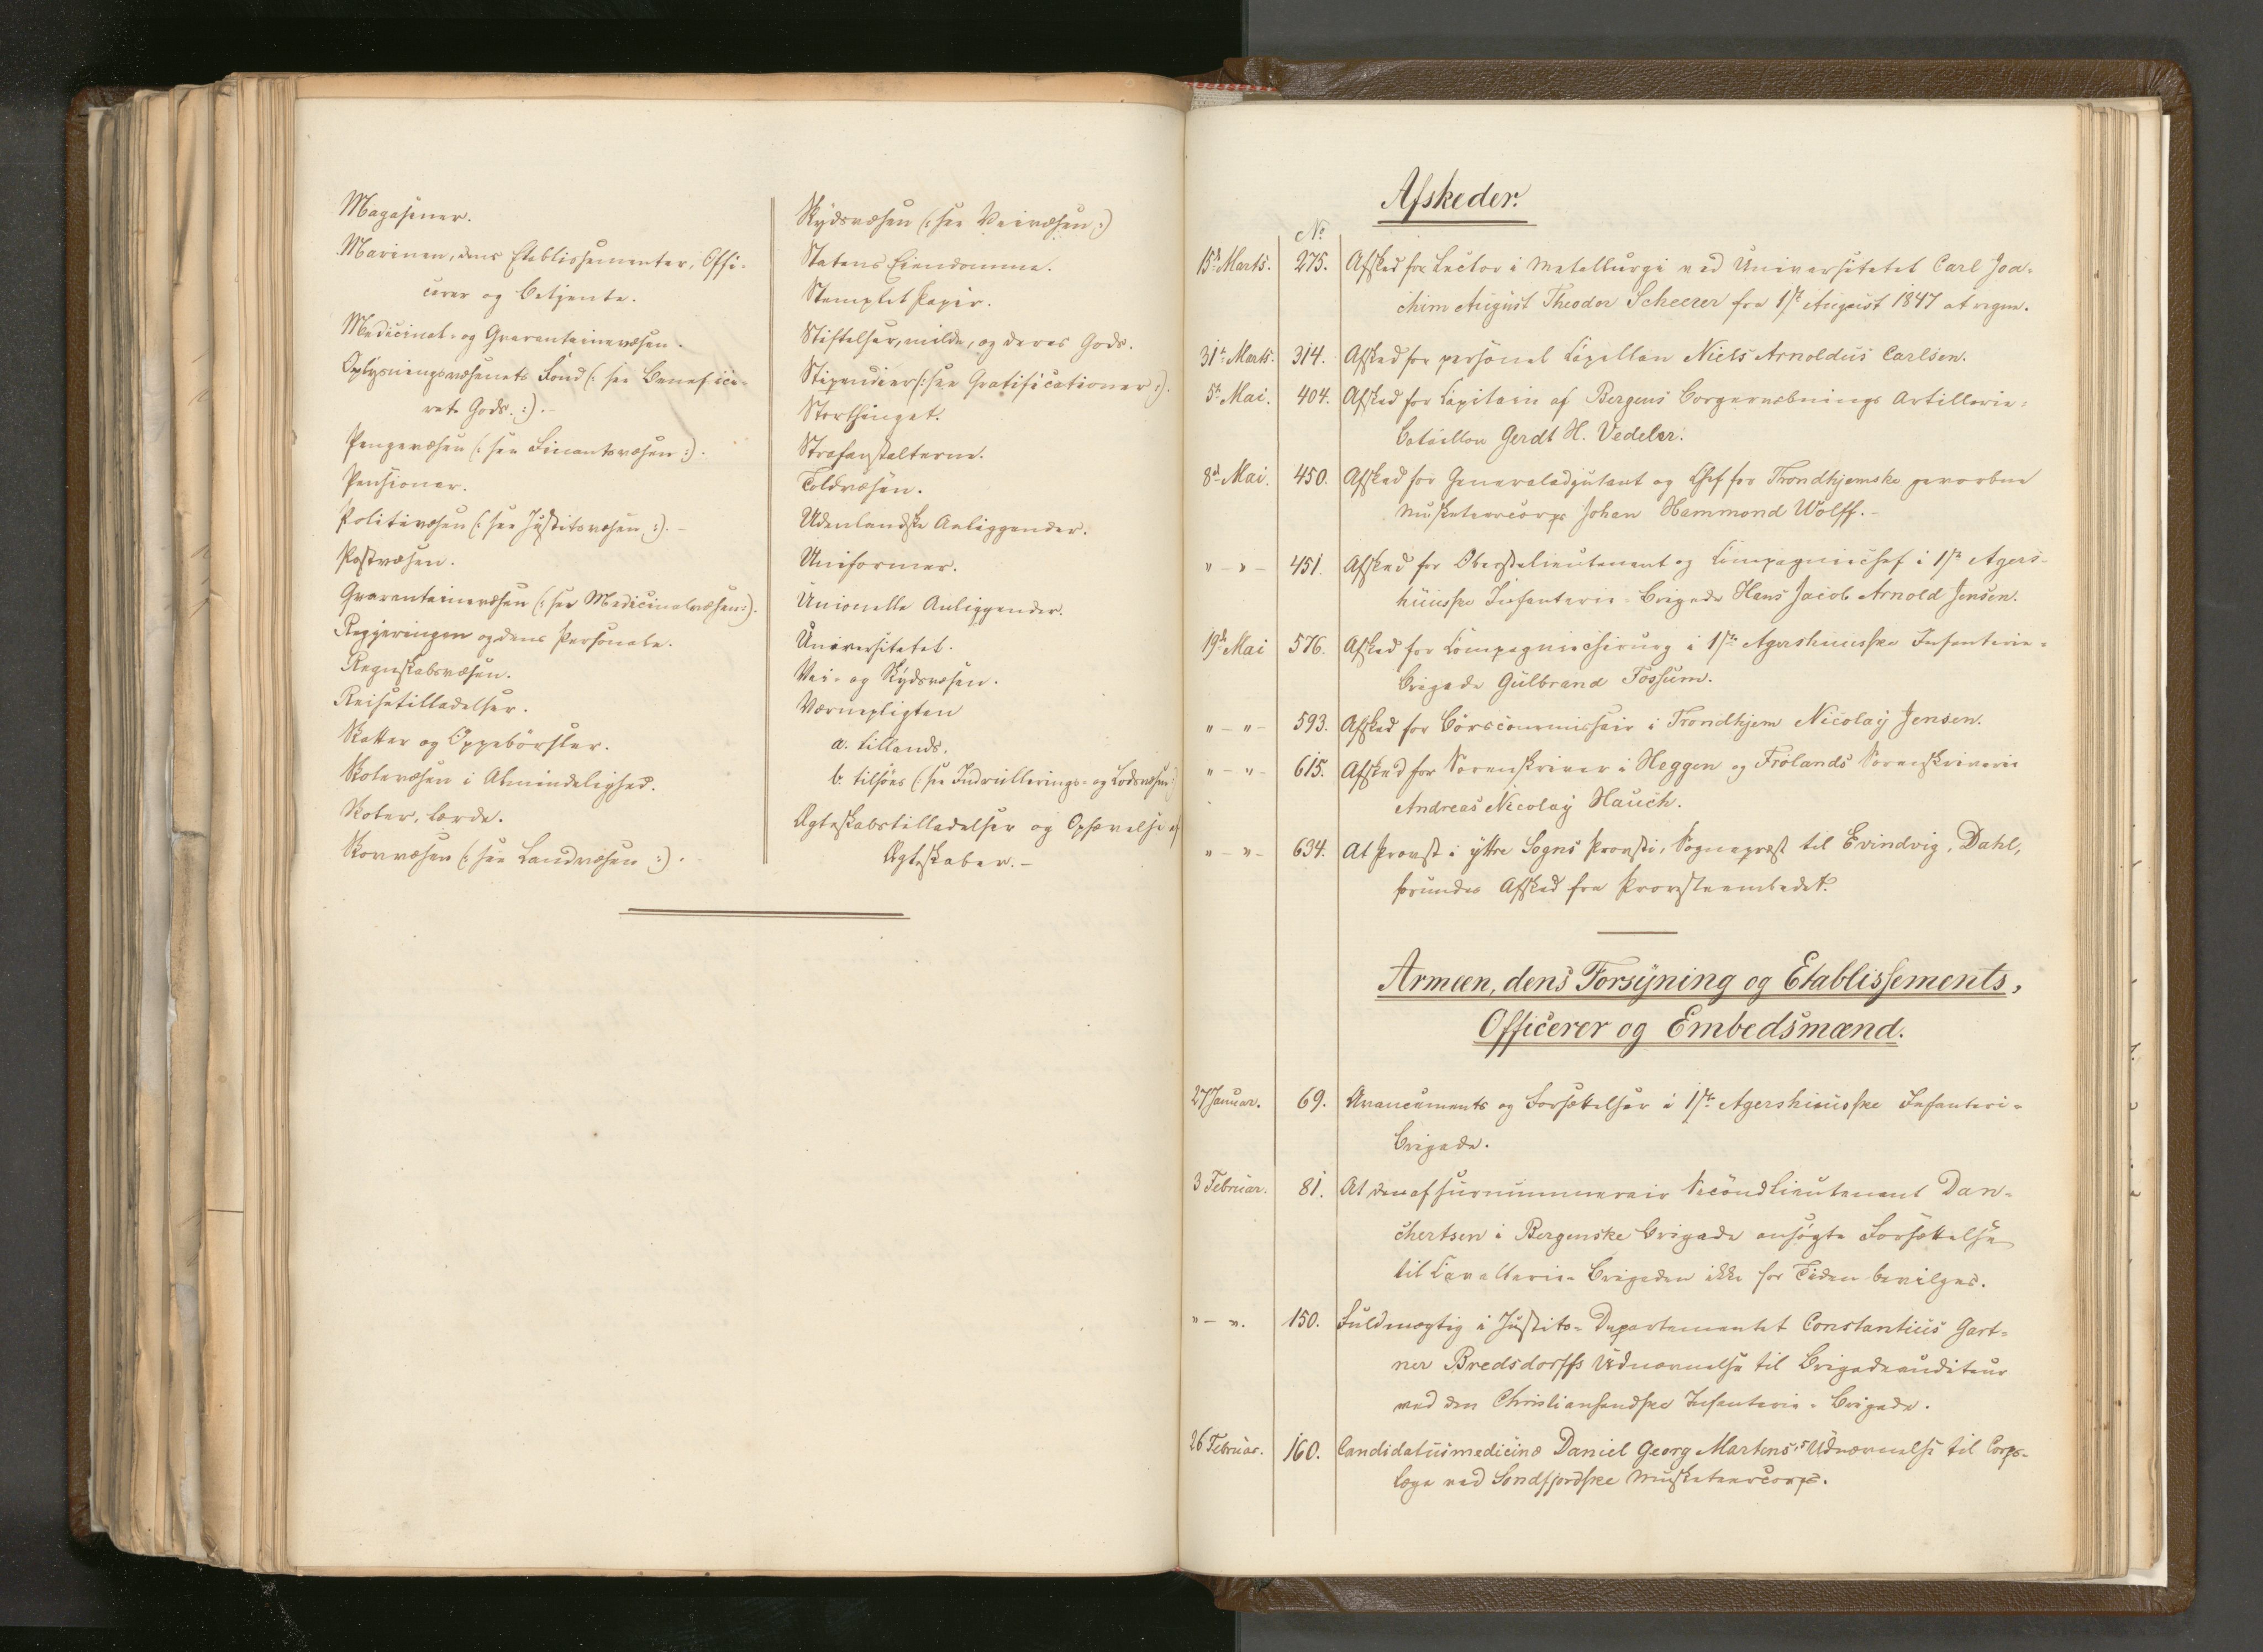 Magasiner.
Marinen, dens Etablissementer, Offi-
cerer og Betjente.
Medicinal- og Qvarantainevæsen.
Oplysningsvæsenets Fond (: see Benefice-
ret Gods. :).-
Pengevæsen (: see Finantsvæsen :).
Pensioner.
Politivæsen (: see Justitsvæsen :). -
Postvæsen.
Qvarantainevæsen (: see Medicinalvæsen :).
Regjeringen og dens Personale.
Regnskabsvæsen.
Reisetilladelser.
Skatter og Oppebørsler.
Skolevæsen i Almindelighed.
Skoler, lærde.
Skovvæsen (: see Landvæsen :).
Skydsvæsen (: see Veivæsen :)
Statens Eiendomme.
Stemplet Papir.
Stiftelser, milde, og deres Gods.
Stipendier (: see Gratificationer :).
Storthinget.
Strafanstalterne.
Toldvæsen.
Udenlandske Anliggender.
Uniformer.
Unionelle Anliggender.
Universitetet.
Vei- og Skydsvæsen.
Værnepligten
a. tillands.
b. tilsøes (: see Indrullerings- og Lodsvæsen :)
Ægteskabstilladelser og Ophævelse af
Ægteskaber. -
Afskeder.
No
15de Marts. 275. Afsked for Lector i Metallurgi ved Universitetet Carl Joa-
chim August Theodor Scheerer fra 1ste August 1847 at regne.
31te Marts. 314. Afsked for personel Capellan Niels Arnoldus Carlsen.
5te Mai. 404. Afsked for Capitain af Bergens Borgervæbnings Artillerie-
Bataillon Gerdt H. Vedeler.
8de Mai. 450. Afsked for Generaladjutant og Chef for Trondhjemske gevorbne
Musketeercorps Johan Hammond Wolff. -
" - " - 451. Afsked for Oberstlieutenant og Compagniechef i 1ste Agers-
huusske Infanterie-Brigade Hans Jacob Arnold Jensen.
19de Mai 576. Afsked for Compagniechirurg i 1ste Agershuusske Infanterie-
Brigade Gulbrand Fossum.
" - " - 593. Afsked for Børscommissair i Trondhjem Nicolay Jensen.
" - " - 615. Afsked for Sorenskriver i Heggen og Frølands Sorenskriverie
Andreas Nicolay Hauch.
" - " - 634. At Provst i ytre Sogns Provsti, Sognepræst til Evindvig, Dahl,
forundes Afsked fra Provsteembedet.
Armeen, dens Forsyning og Etablissements,
Officerer og Embedsmænd.
27 Januar. 69. Avancements og Forsættelser i 1ste Agershuusske Infanteri-
Brigade.
3 Februar. 81. At den af surnummerair Secondlieutenant Dan-
chertsen i Bergenske Brigade ansøgte Forsættelse
til Cavallerie-Brigaden ikke for Tiden bevilges.
" - ". 150. Fuldmægtig i Justits-Departementet Constantius Gart-
ner Bredsdorffs Udnævnelse til Brigadeauditeur
ved den Christiansandske Infanterie-Brigade.
26 Februar. 160. Candidatus medicinæ Daniel Georg Martens's Udnævnelse til Corps-
læge ved Søndfjordske Musketeercorps.